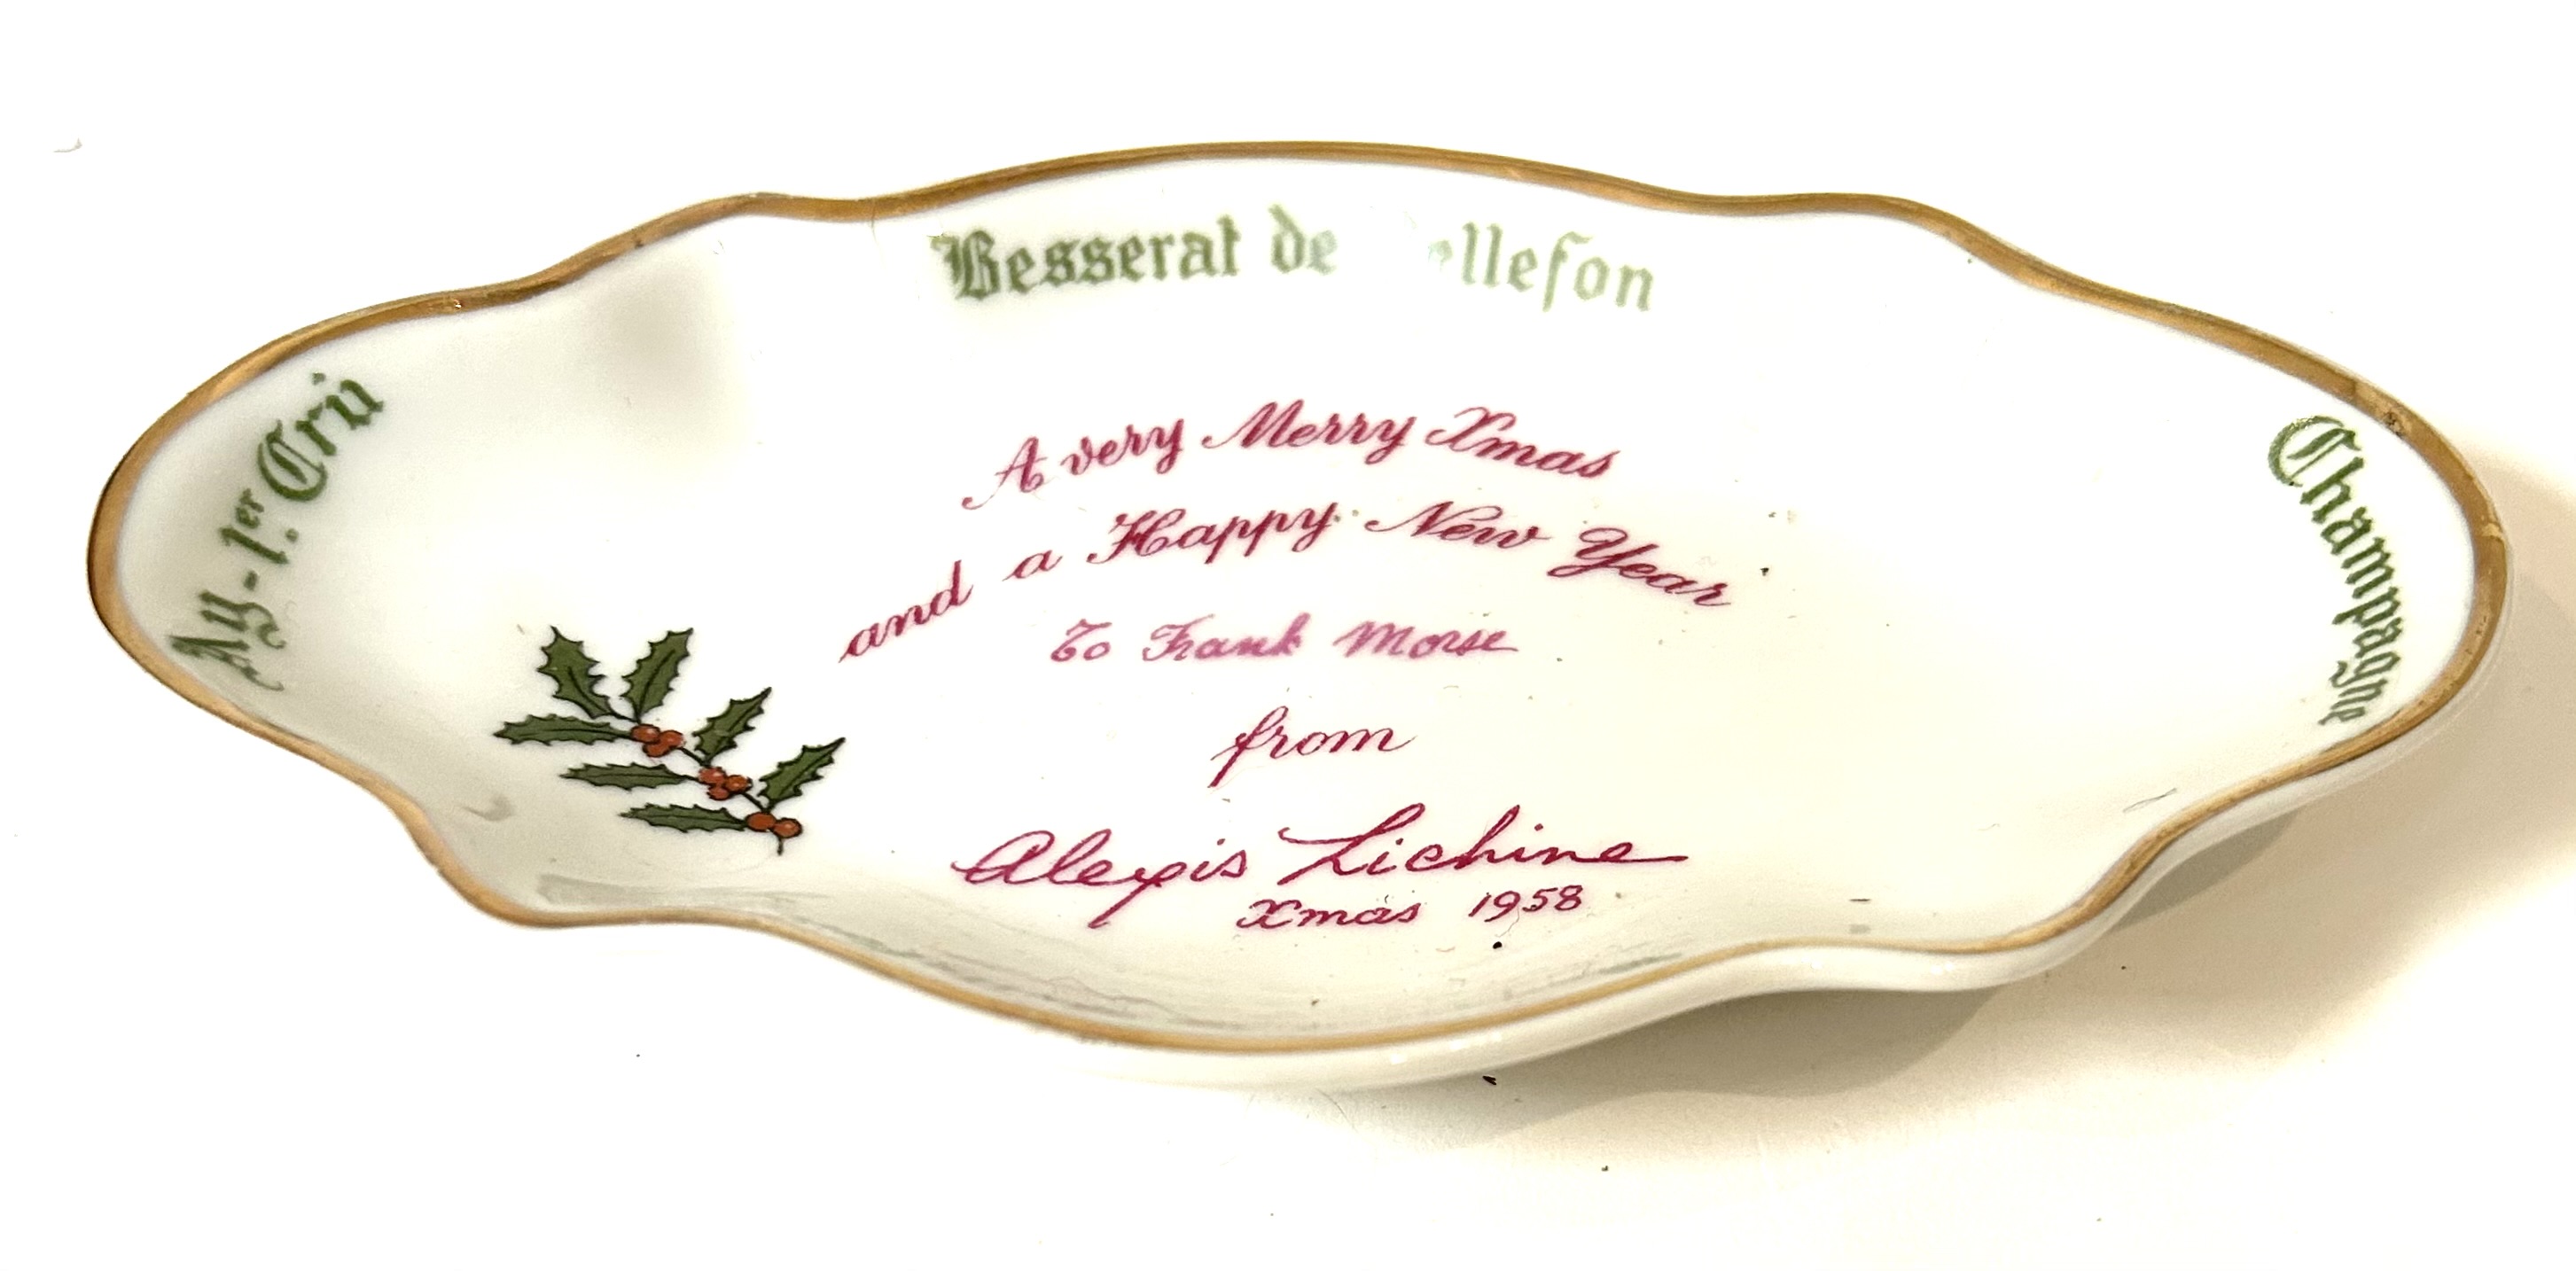 Besserat de ellefon
Ay-1er. Crù
Champagne
A very Merry Xmas
and a Happy New Year
To Frank Morse
from
Alexis Lichine
Xmas 1958